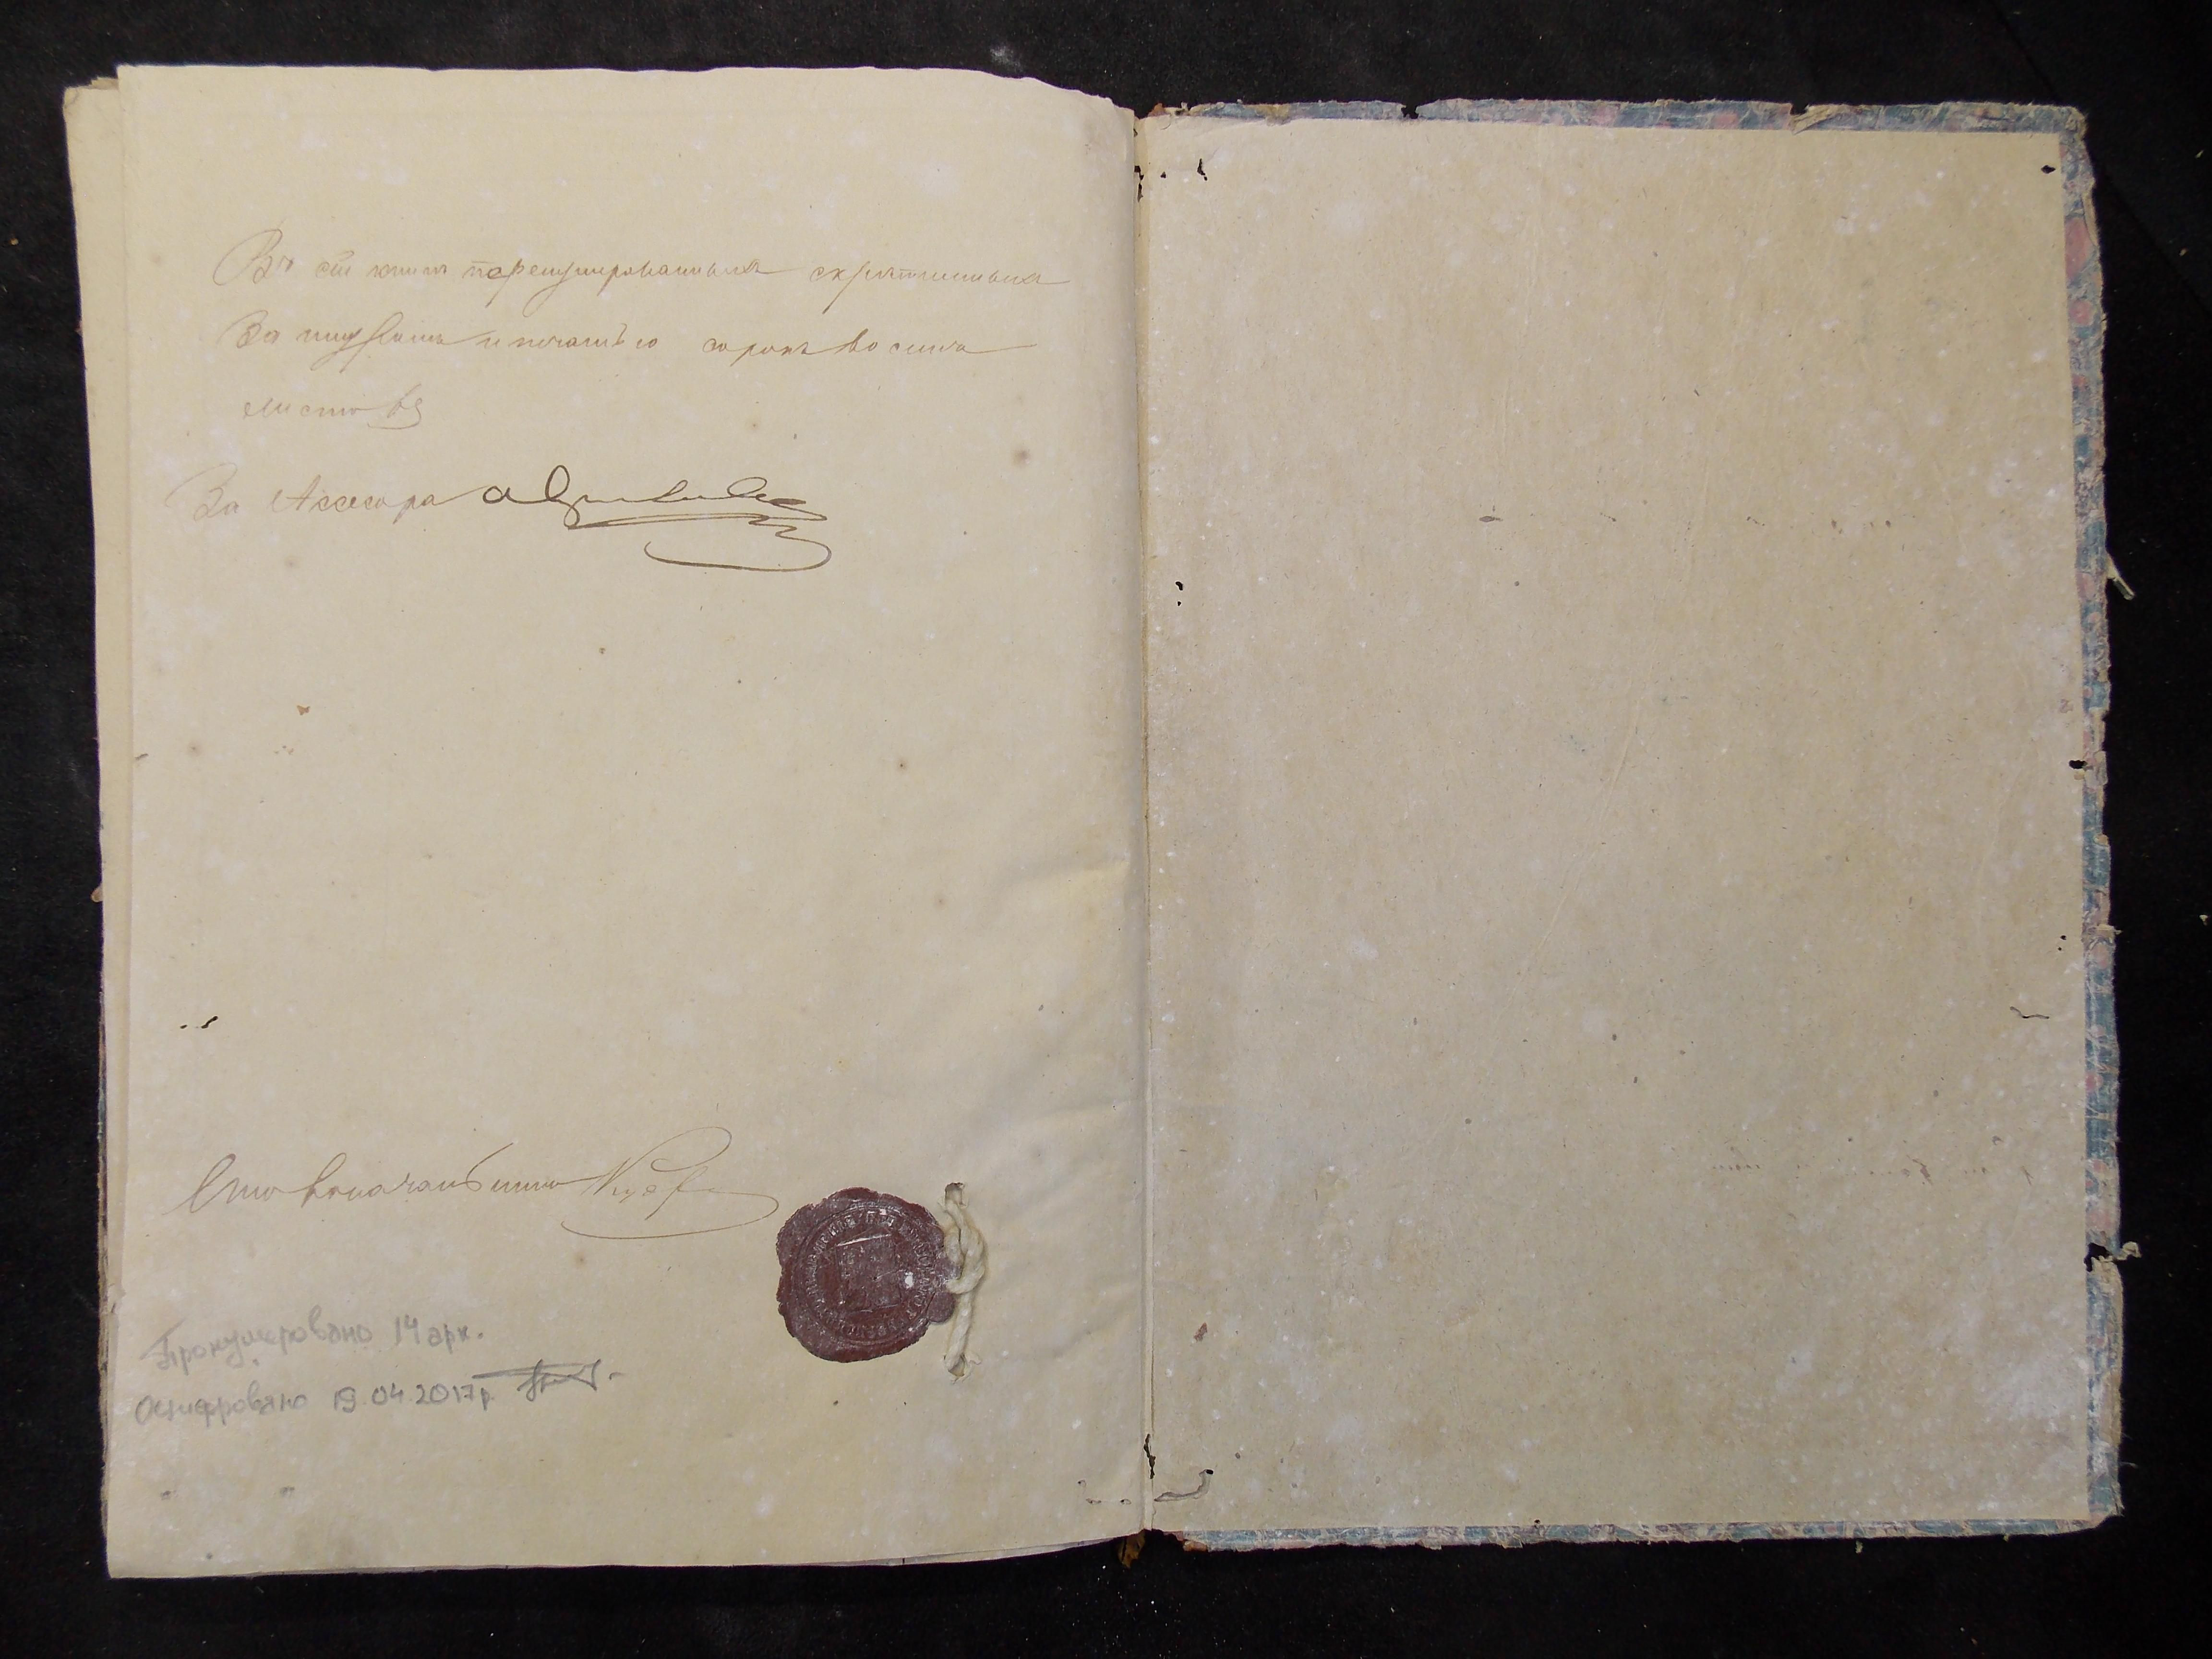 Въ сей книги перенумерованныхъ скрепленныхъ
За шнуромъ и печатью сорокъ восимь
листовъ
За Асесора
Столоначальникъ
Пронумеровано 14 арк.
Оцифровано 19.04.2017р.